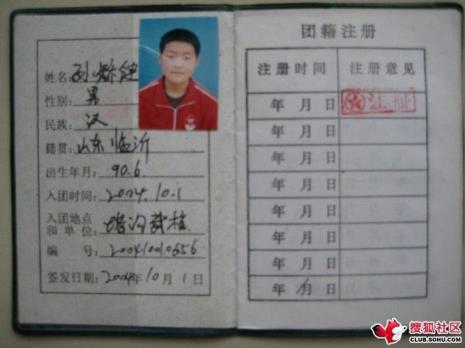 姓名: 孙
性别: 男
民族: 汉
籍贯: 山东临沂
出生年月: 90.6
入团时间: 2004.10.1
入团地点
和单位:
编 号 20041010656
签发日期: 2004年10月1日
团籍注册
注册时间 注册意见
年 月 日 注
年 月 日
年 月 日
年 月 日
年 月 日
年 月 日
年 月 日
年 月 日
搜狐社区
CLUB.SOHU.COM